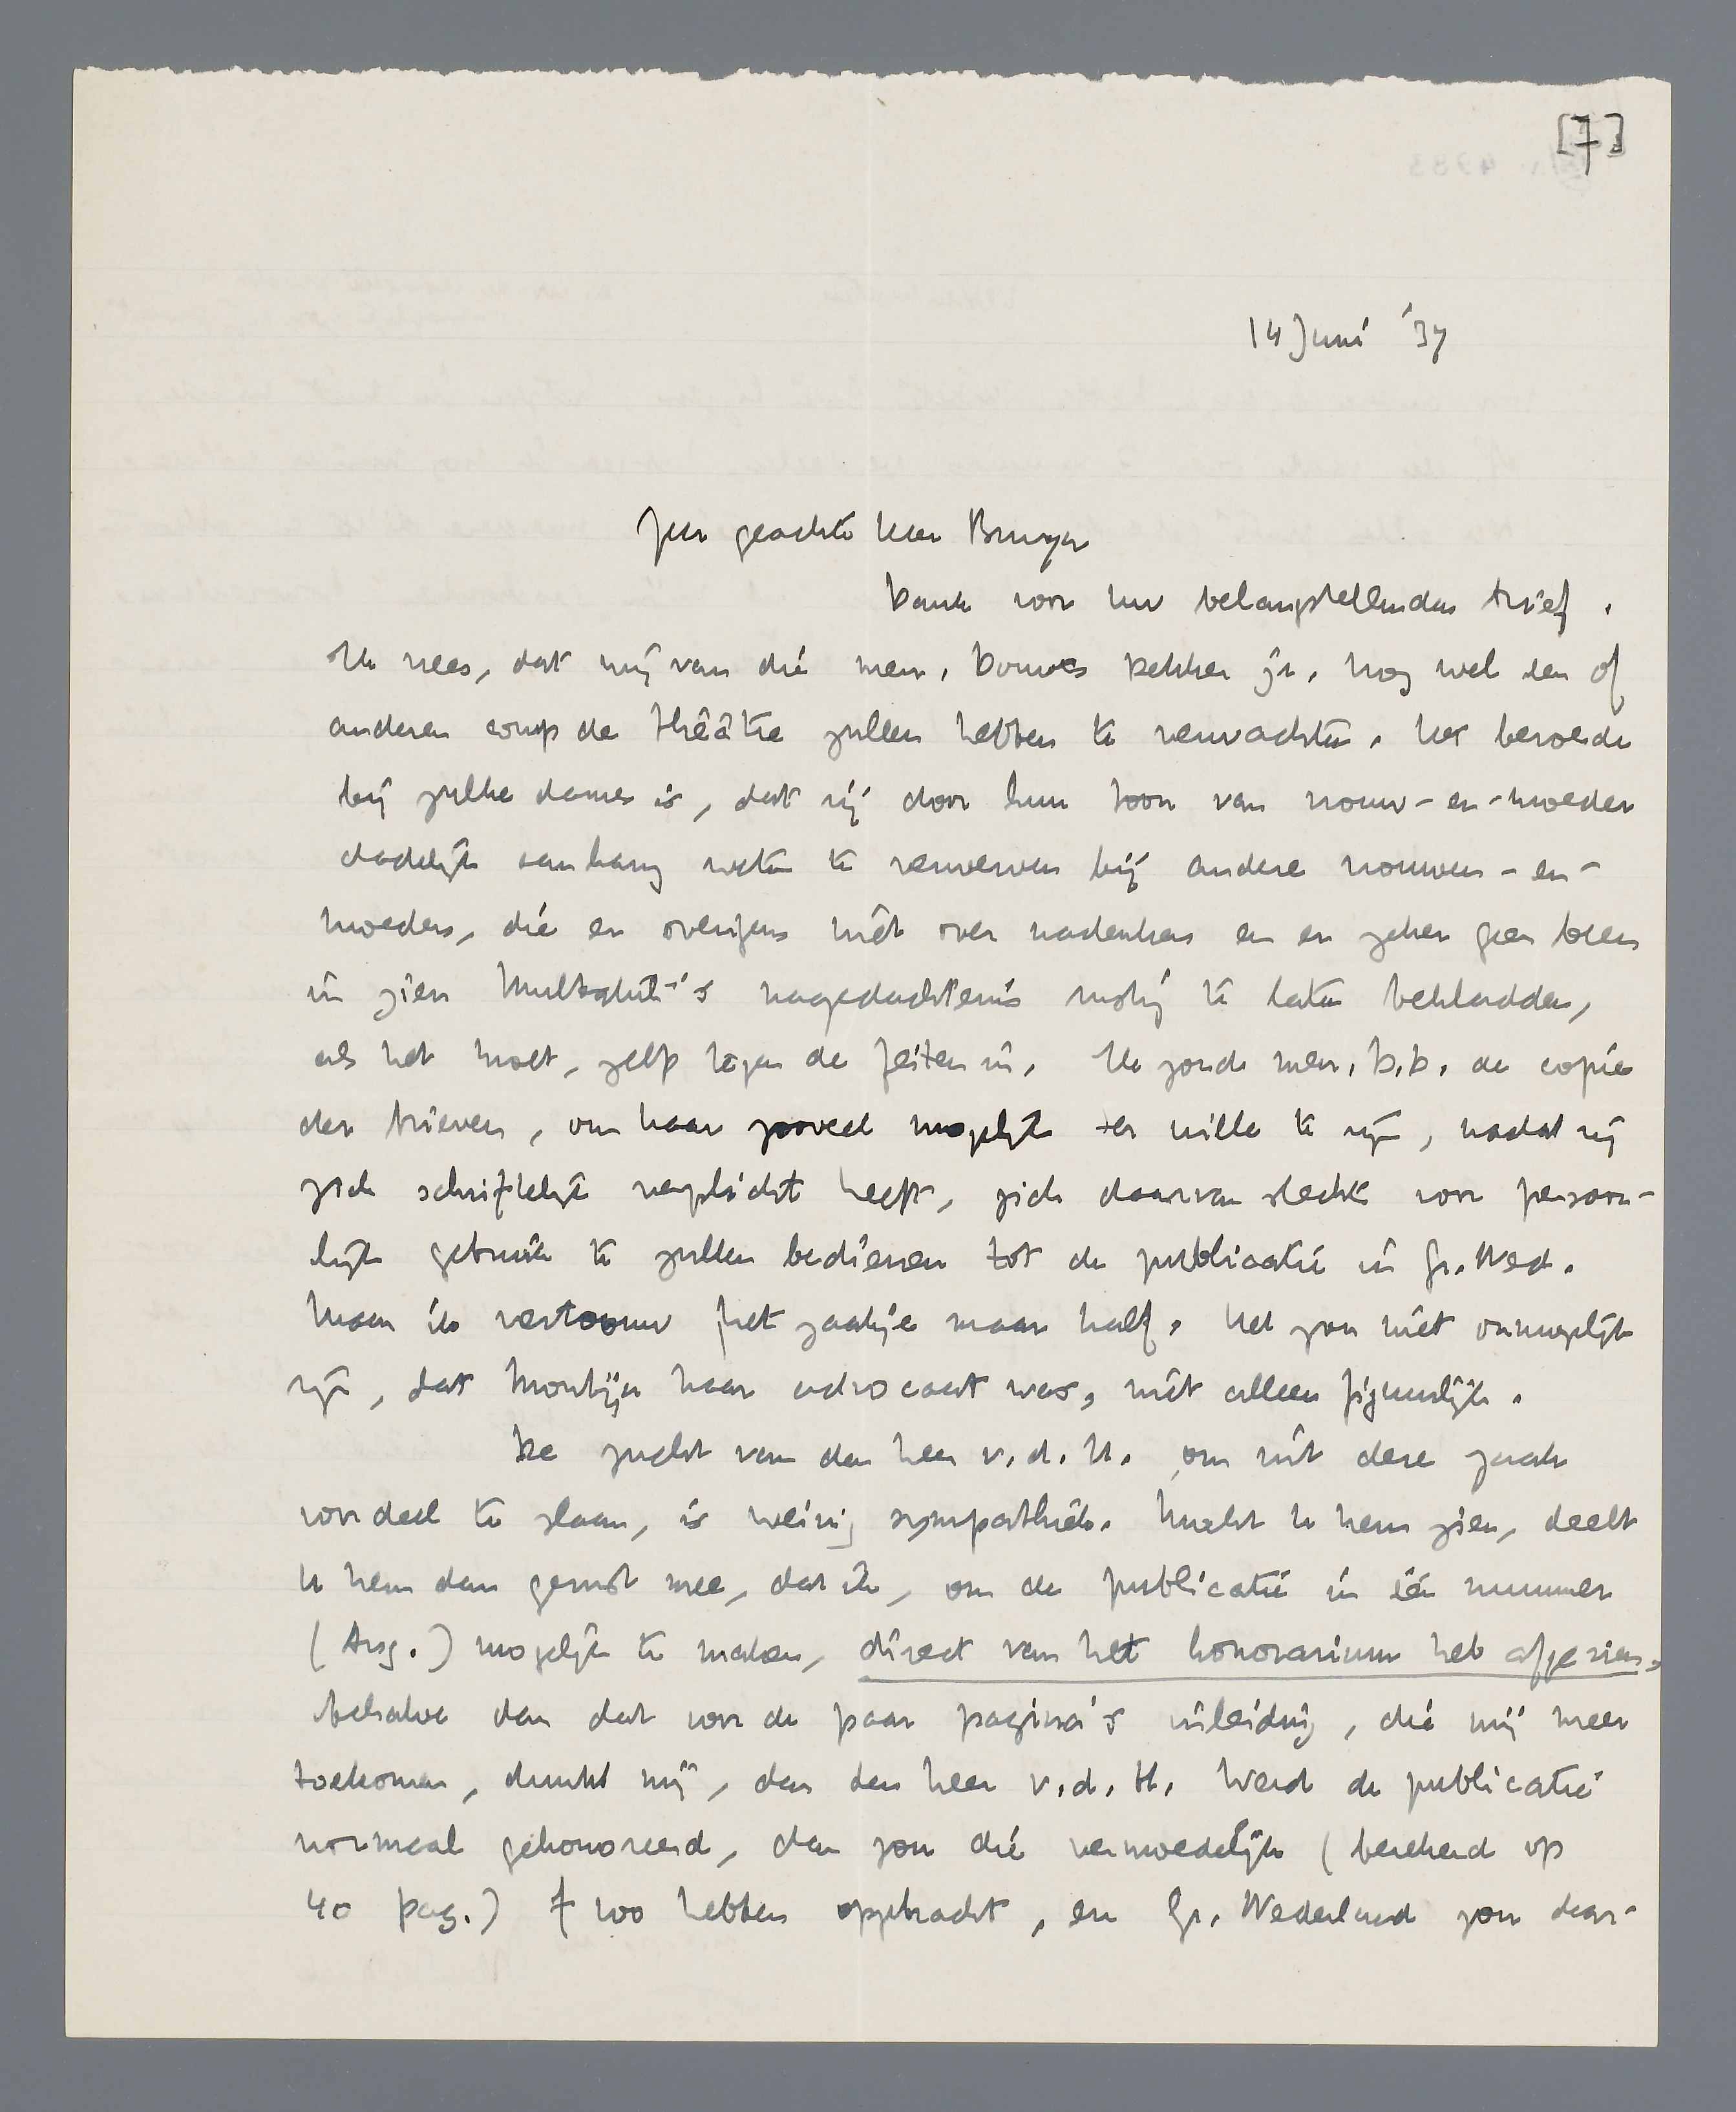 [7]
14 Juni '37
Zeer geachte heer Bruyn
Dank voor Uw belangstellenden brief.
Ik vrees, dat wij van die mevr. Douwes Dekker Jr. nog wel een of
anderen coup de théâtre zullen hebben te verwachten. Het beroerde
bij zulke dames is, dat zij door hun toon van vrouw-en-moeder
dadelijk aanhang weten te verwerven bij andere vrouwen-en-
moeders, die er overigens niet over nadenken en er zeker geen been
in zien Multatuli's nagedachtenis rustig te laten bekladden,
als het moet, zelfs tegen de feiten in. Ik zond mevr. D.D. de copie
der brieven, om haar zooveel mogelijk ter wille te zijn, nadat zij
zich schriftelijk verplicht heeft, zich daarvan slechts voor persoon-
lijk gebruik te zullen bedienen tot de publicatie in Gr. Ned.
Maar ik vertrouw het zaakje maar half. Het zou niet onmogelijk
zijn, dat Montijn haar advocaat was, niet alleen figuurlijk.
De zucht van den heer v.d.H. om uit deze zaak
voordeel te slaan, is weinig sympathiek. Mocht U hem zien, deelt
U hem dan gerust mee, dat ik, om de publicatie in één nummer
(Aug.) mogelijk te maken, direct van het honorarium heb afgezien,
behalve dan dat voor de paar pagina's inleiding, die mij meer
toekomen, dunkt mij, dan den heer v.d.H. Werd de publicatie
normaal gehonoreerd, dan zou die vermoedelijk (berekend op
40 pag.) f 100 hebben opgebracht, en Gr. Nederland zou daar-